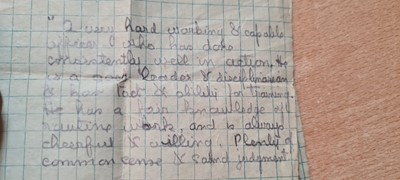 " A very hard working & capable
officer who has done
consistently well in action, &
is a good leader & disciplinarian
& has tact & ability for training.
He has a fair knowledge of
routine work, and is always
cheerful & willing. Plenty of
common sense & sound judgment"